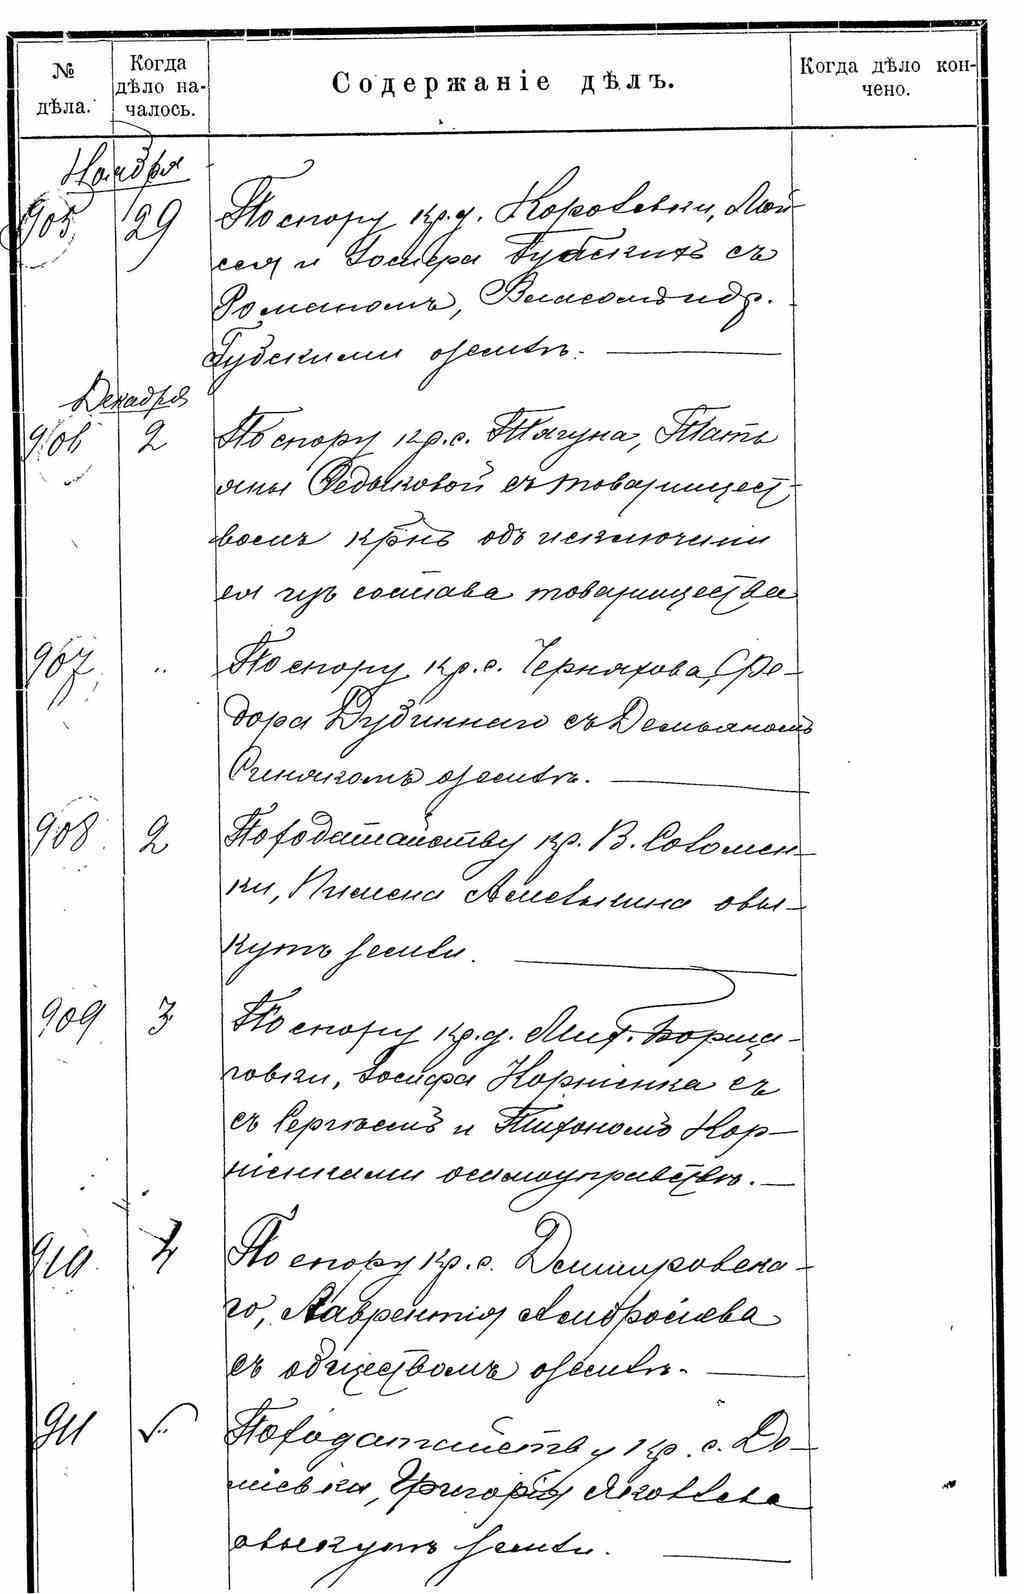 № дѣла.
Когда дѣло на-
чалось.
Содержаніе дѣлъ.
Когда дѣло кон-
чено.
Ноября
905 29 По спору кр. д. Коровевки, Мой-
сея и Іосифа Губскихъ съ
Романомъ, Власомъ и др.
Губскими о землѣ.
Декабря
906 2 По спору кр. с. Тягуна, Тать
яны Федьковой съ товарищест
вомъ кр-нъ объ исключеніи
ея изъ состава товарищества
907 „ По спору кр. с. Черняхова, Фе-
дора Дубиннаго съ Демьяномъ
Синякомъ о землѣ.
908 2 По ходатайству кр. В. Соломен-
ки, Пимена о вы-
купѣ земли.
909 3 По спору кр. д. Мих. Борща-
говки, Іосифа Корніенка съ
съ Сергѣемъ и Тихономъ Кор-
ніенками о самоуправствѣ.
910 4 По спору кр. с. Демировска-
го, Лаврентія Амвросіева
съ обществомъ о землѣ.
911 По ходатайству кр. с.
Григорія Яковлева
о выкупѣ земли.